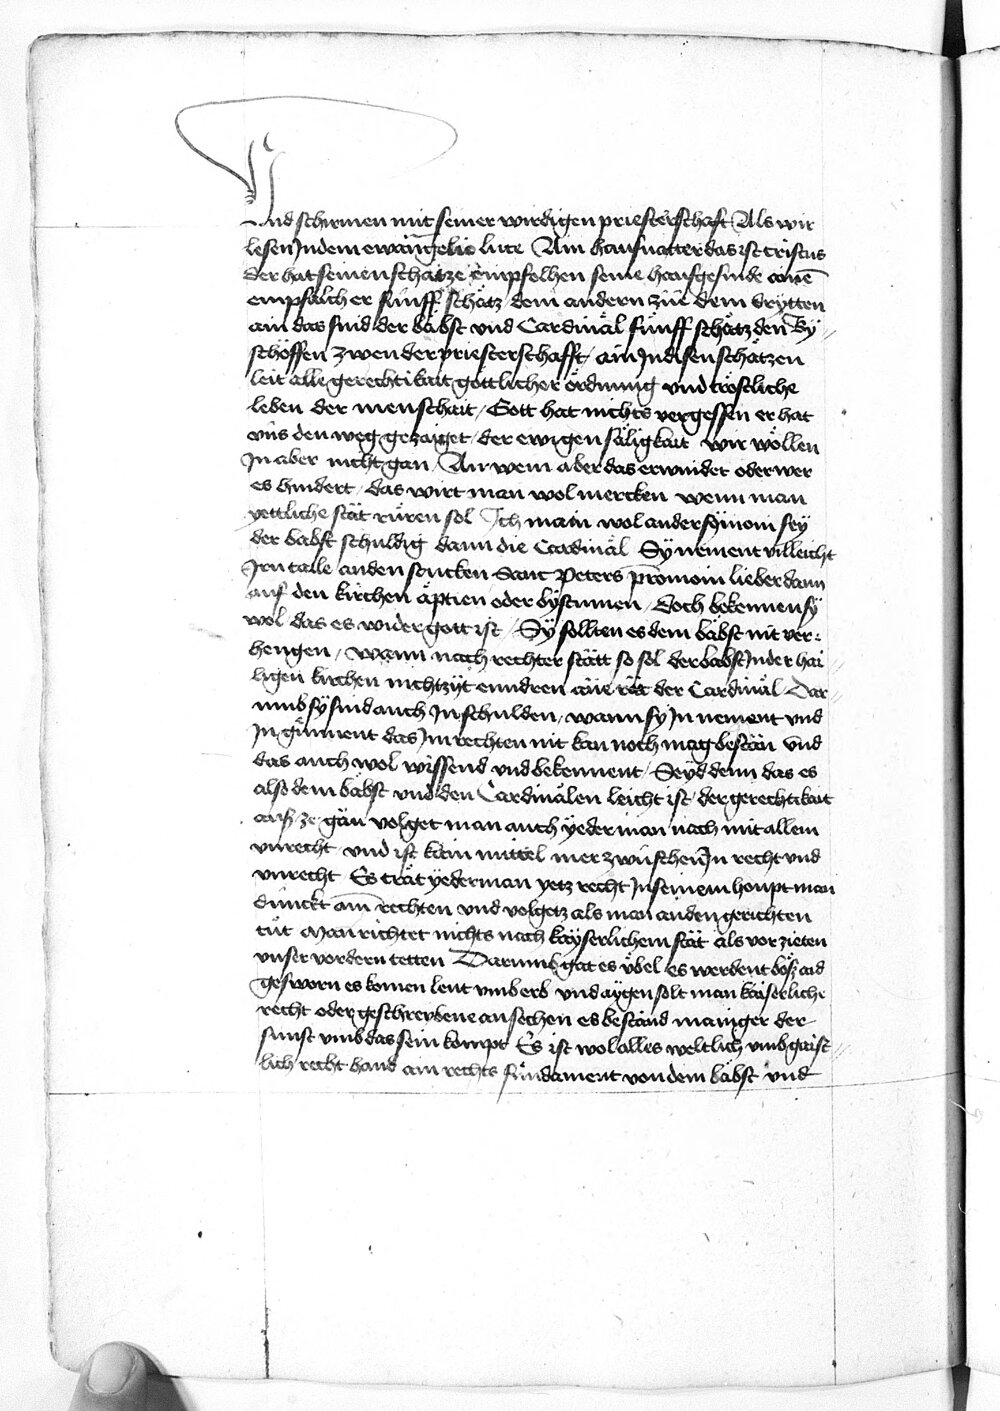 Und schirmen mit seiner wirdigen priesterschaft Als wir
lesen Jn dem ewangelio luce Ain hausuatter das ist cristus
der hat seinen schatze empfolhen seine hausgesinde ainē
empfalch er fünff schätz dem andern zwe dem drytten
ain das sind der babst vnd Cardinäl fünff schätz den By//
schöffen zwen der priesterschafft / ain Jn disen schätzen
leit alle gerechtikait göttlicher ördnung vnd tröstliche
leben der menschait / Gott hat nichts vergessen er hat
vns den weg gezaiget / der ewigen säligkait wir wöllen
Jn aber nicht gan / An wem aber das erwindet oder wer
es hindert / das wirt man wol mercken wenn man
yettliche stät rüren sol Ich main wol an der symoni sey
der babst schuldig dann die Cardinäl Sÿ nement villeicht
Jrn taile an den stucken Sant Peters lieber dann
auf den kirchen äptien oder bystumen / Doch bekennen sÿ
wol das es wider gott ist / Sÿ sollten es dem babst nit ver:
hengen / wann nach rechter stätt so sol der babst Jn der hai//
ligen kirchen nichtzit enndren ane rät der Cardinäl Dar//
umb sÿ sind auch Jn schulden / wann sy Jn nement vnd
Jn günnent das Jm rechten nit kan noch mag bestän vnd
das auch wol wissend vnd bekennent / Seyd denn das es
also dem babst vnd den Cardinälen leicht ist / der gerechtikait
auß ze gän volget man auch yederman nach mit allem
vnrecht / vnd ist kain mittel mer zwüschen Jn recht vnd
vnrecht Es trät yederman yetz recht Jn seinem houpt man
dunckt am rechten vnd volgetz als man an den gerichten
tüt Man richtet nichts nach kayserlichem stät als vor zieten
vnser vordern tetten Darumb gat es übel es werdent böß aid
gesworn es komen leut vmb erb vnd aygen solt man kaiserliche
recht oder geschrybene ansechen es beständ mainger der
sunst vmb das sein kompt Es ist wol alles weltlich vnd gaist//
lich recht hand ain rechts fundament von dem babst vnd